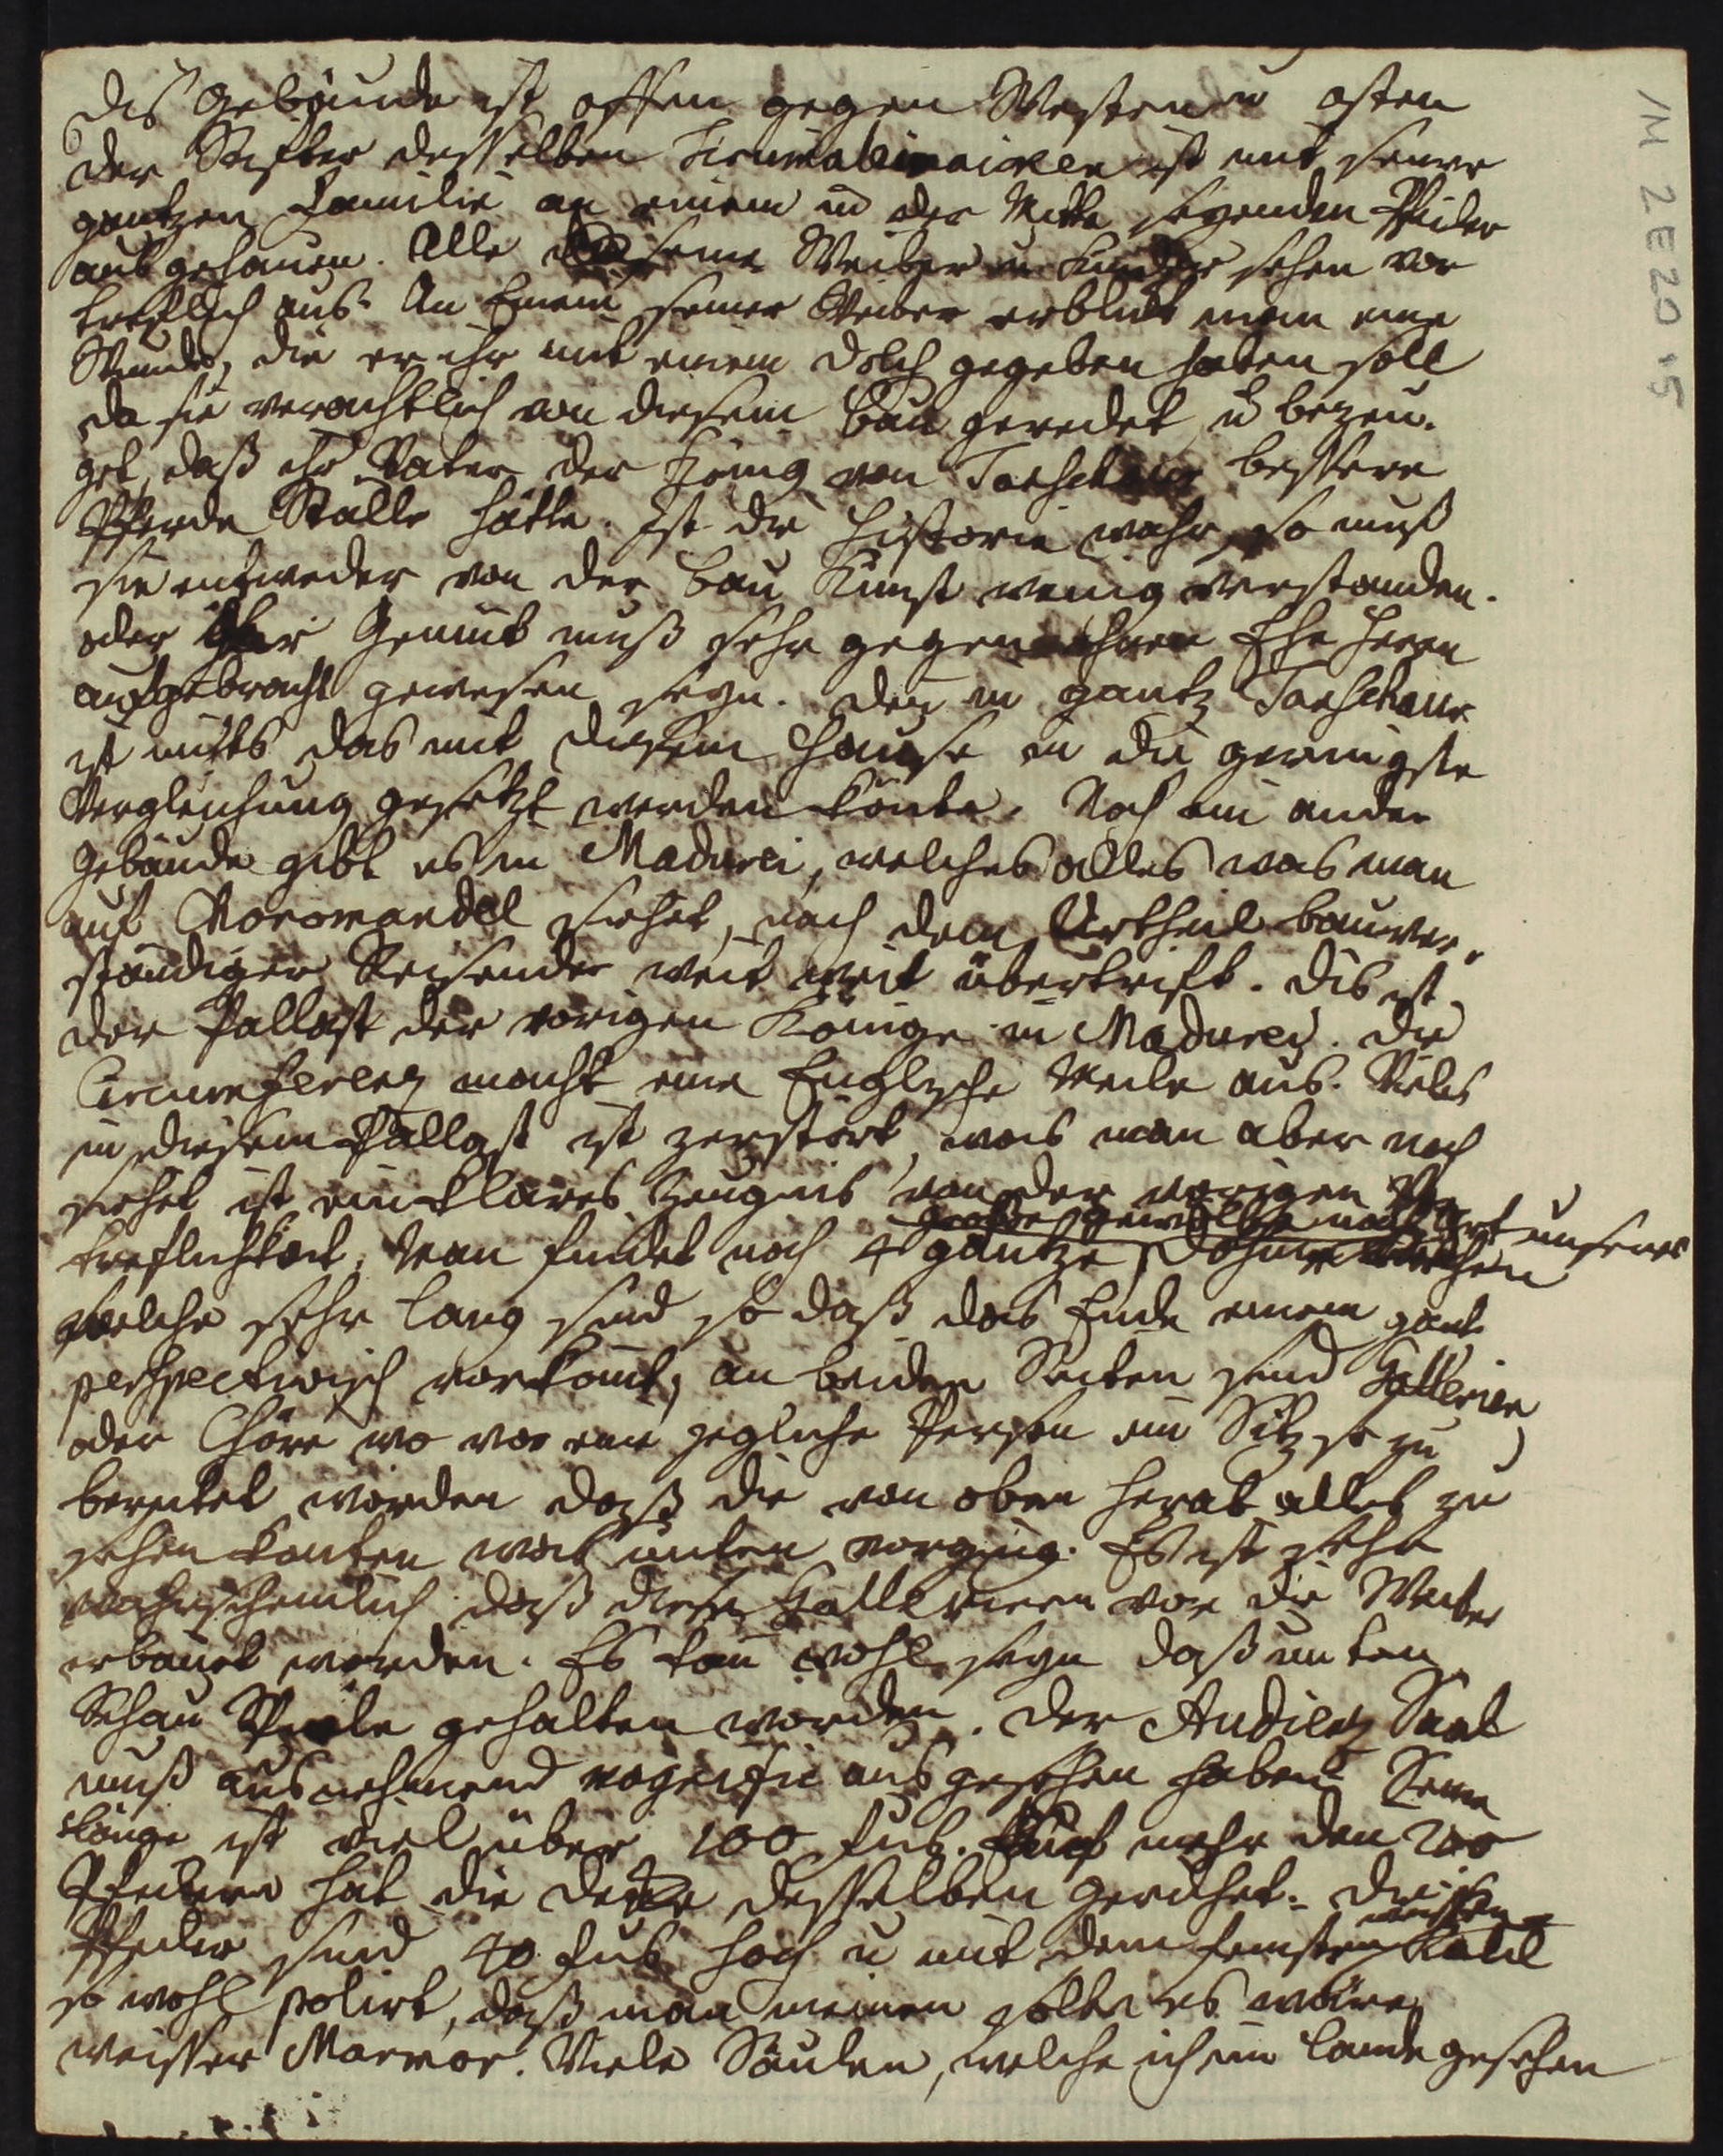 Dis Gebäude ist offen gegen Westen u osten
der Stifter desselben Tirumaleinaicken ist mit seiner
gantzen Familie an einem in der Mitte seyenden Pfeiler
ausgehauen. Alle seine Weiber u Kinder sehen vor
treflich aus. An Einem seiner Weiber erblickt man eine
Wunde, die er ihr mit einem Dolch gegeben haben soll
da sie verachtlich von diesem Bau geredet, u bezeu-
get, daß ihr Vater der König von Tanschaur bessere
Pferde Ställe hätte. Ist die Historie wahr, so muß
sie entweder von der Bau Kunst wenig verstanden.
oder ihr Gemüt muß sehr gegen ihren Ehe Herrn
aufgebracht gewesen seyn. Den in gantz Tanschaur
ist nichts das mit diesem Hause in die geringste
Vergleichung gesetzt werden könte. Noch ein ander
Gebäude gibt es in Madurei, welches alles was man
auf Choromandel siehet, nach dem Urtheil bauver-
ständiger Reisender weit weit übertrift. Dis ist
der Pallast der vorigen Könige in Madurei. Die
Circumferenz macht eine Englische Meile aus. Vieles
in diesem Pallast ist zerstört, was man aber noch
siehet ist ein klares Zeugnis von der vorigen Vor
große Gewölbe nach Art unserer
treflichkeit. Man findet noch 4 gantze Dohm Kirchen
welche sehr lang sind so daß das Ende einem gantz
perspectivisch vorkomt, an beiden Seiten sind Gallerien
oder Chöre wo vor eine jegliche Person ein Sitz so zu
bereitet worden daß die von oben herab alles zu
sehen konten was unten vorging. Es ist sehr
wahrscheinlich daß diese Gallerieen vor die Weiber
erbauet worden. Es kan wohl seyn daß unten
Schau Spiele gehalten worden. Der Audienz Saal
muß ausnehmend magnific ausgesehen haben. Seine
Länge ist viel über 100 Fus. Auf mehr den
Pfeilern hat die Decke desselben geruhet. Die
weissen
Pfeiler sind 40 Fus hoch u mit dem feinsten Kalck
so wohl polirt, daß man meinen solte es wäre
weisser Marmor. Viele Säulen, welche ich im Lande gesehen
1M 2E20 :5